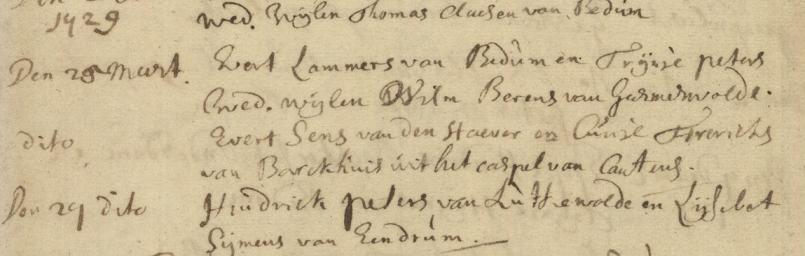 1729 wed. Wijlen Thomas Claesen van Bedum
Den 28 Mart. Evert Lammers van Bedùm en Trijnje peters
wed. wijlen Wilm Berens van Garmerwolde.
dito Evert Sens van den Haever en Frerichs
van Barckhuis uit het caspel van Cantens.
Den 29 dito Hindrick peters van Luttewolde en Lijsebet
Sijmens van Eendrùm.